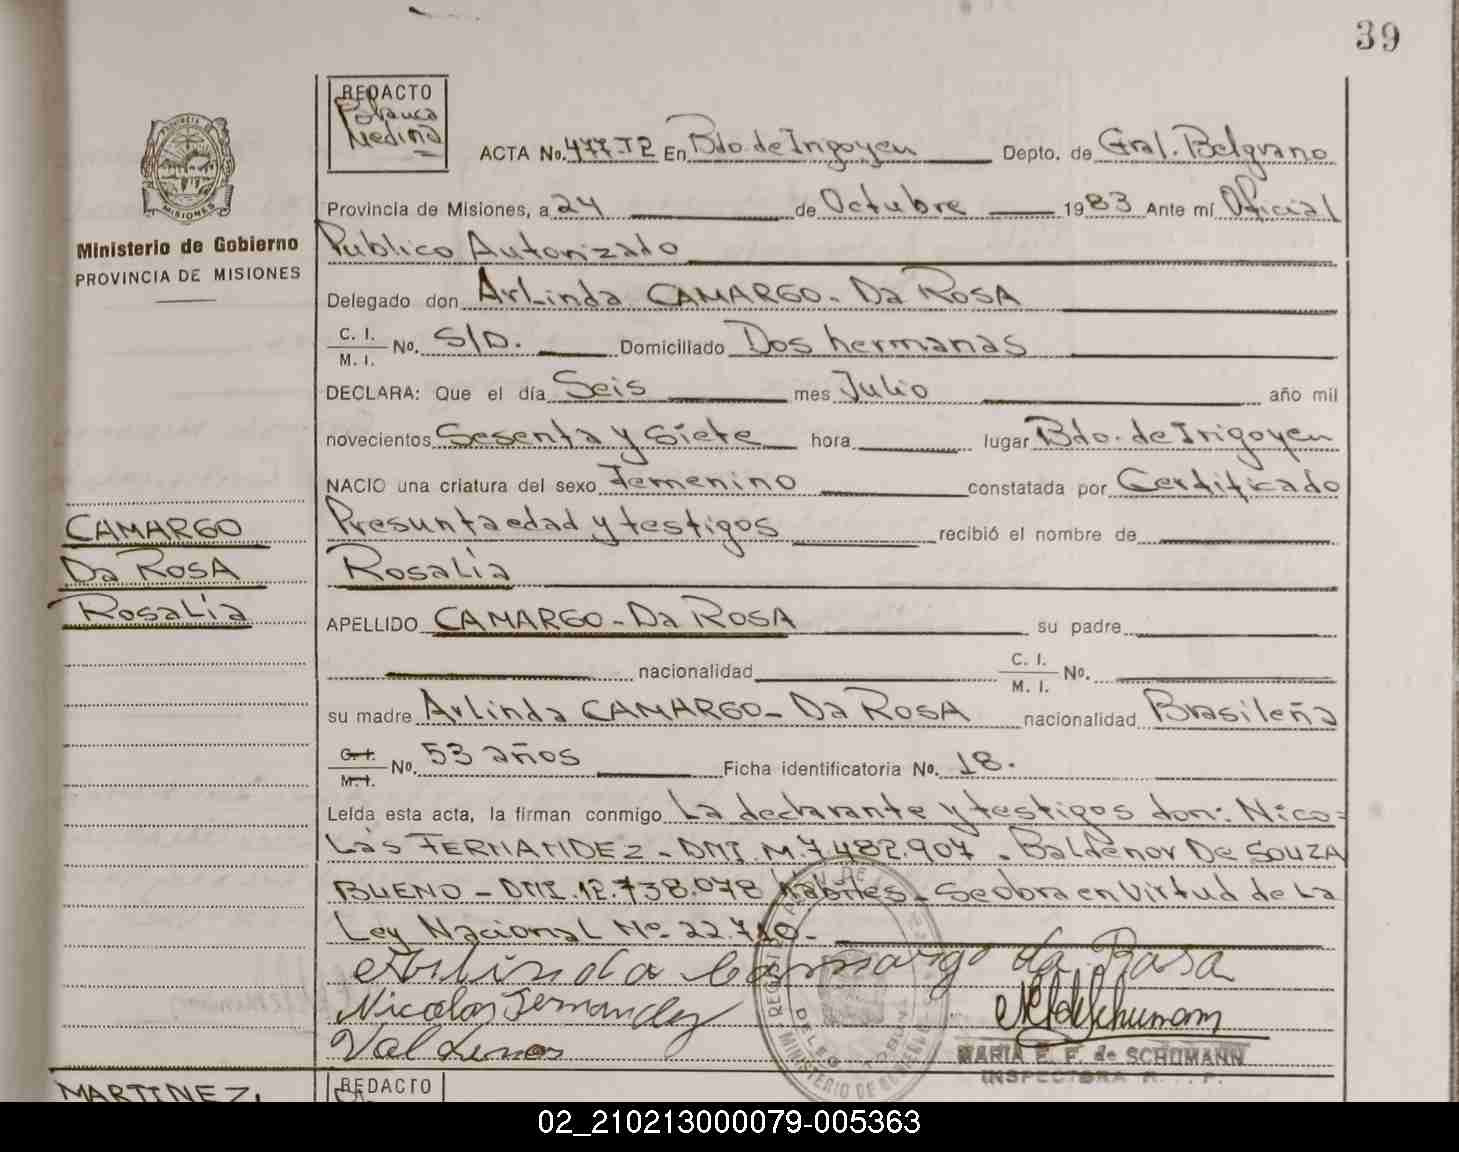 39
REDACTO
Polauca
Medina
ACTA No. 477.T2 En Bdo. de Irigoyen Depto. de Gral. Belgrano
Provincia de Misiones, a 24 de Octubre 1983 Ante mí Oficial
Publico Autorizado
Ministerio de Gobierno
PROVINCIA DE MISIONES
Delegado don Arlinda CAMARGO - Da ROSA
C. I.
M. I. No. S/D. Domiciliado Dos hermanas
DECLARA: Que el día Seis mes Julio año mil
novecientos Sesenta y Siete hora lugar Bdo. de Irigoyen
NACIO una criatura del sexo Femenino constatada por Certificado
Presunta edad y testigos recibió el nombre de
Rosalia
CAMARGO
Da ROSA
Rosalia
APELLIDO CAMARGO - Da ROSA su padre
nacionalidad C. I.
M. I. No.
su madre Arlinda CAMARGO - Da ROSA nacionalidad Brasileña
C. I.
M. I. No. 53 años Ficha identificatoria No. 18.
Leída esta acta, la firman conmigo La declarante y testigos don: Nico=
lás FERNANDEZ - DNI. M. 7.482.907 - Baldenor De SOUZA
BUENO - DNI. 12.738.078 habiles - Se obra en Virtud de La
Ley Nacional Nº 22.710 -
Arlinda Camargo da Rosa
Nicolas Fernandez
Valdenor
MARIA E. F. de SCHUMANN
INSPECTORA
MINISTERIO DE GOBIERNO
MARTINEZ,
REDACTO
02_210213000079-005363